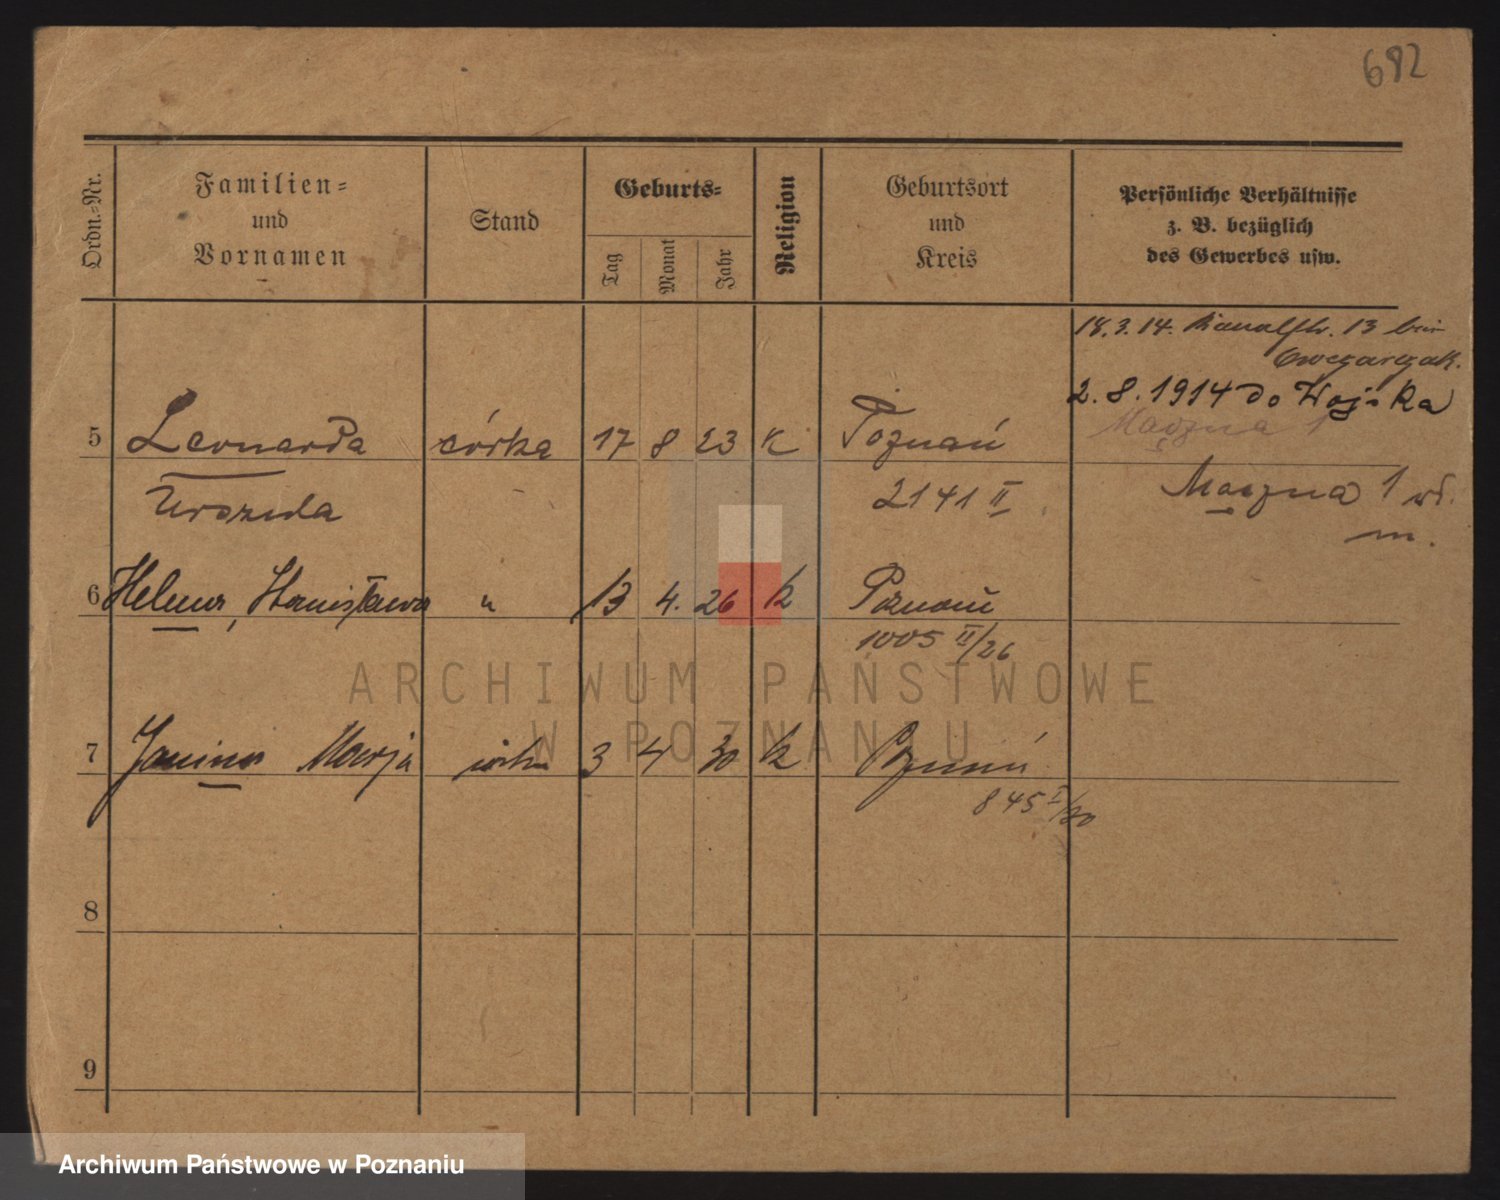 692
Ordn.-Nr.
Familien-
und
Vornamen
Stand
Geburts-
Tag
Monat
Jahr
Religion
Geburtsort
und
Kreis
Persönliche Verhältnisse
z. B. bezüglich
des Gewerbes usw.
18.3.14. Kanalstr. 13 bei
Owczarczak.
2.8.1914 do Wojska
5 Leonarda córka 17 8 23 K Poznań
Mączna 1
Urszula
2141 II
Mączna 1 wł.
m.
6 Helena, Stanisława " 13 4. 26 k Poznań
1005 II/26
7 Janina Marja córka 3 4 30 k Poznań
845 I/30
8
9
ARCHIWUM PAŃSTWOWE
W POZNANIU
Archiwum Państwowe w Poznaniu